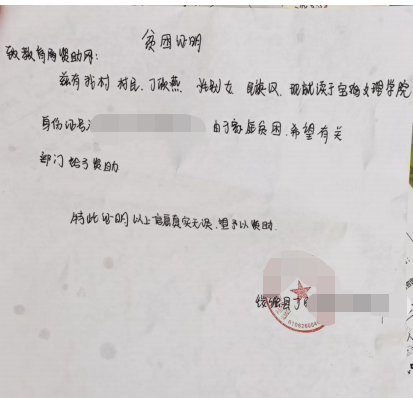 贫困证明
致教育局资助网:
兹有我村 村民、丁欣燕 性别女 民族汉、现就读于宝鸡文理学院
身份证号 由于家庭贫困,希望有关
部门给予资助
特此证明以上信息真实无误,望予以资助.
县丁